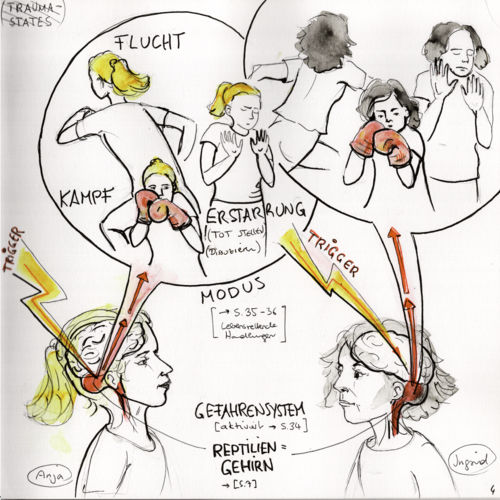 TRAUMA-
STATES
FLUCHT
KAMPF
ERSTARRUNG
(TOT STELLEN
TRIGGER
TRIGGER
MODUS
[→ S. 35-36
Lebensrettende
Handlungen]
GEFAHRENSYSTEM
[aktiviert → S.34]
REPTILIEN=
GEHIRN
→ [S.7]
Anja
Ingrid